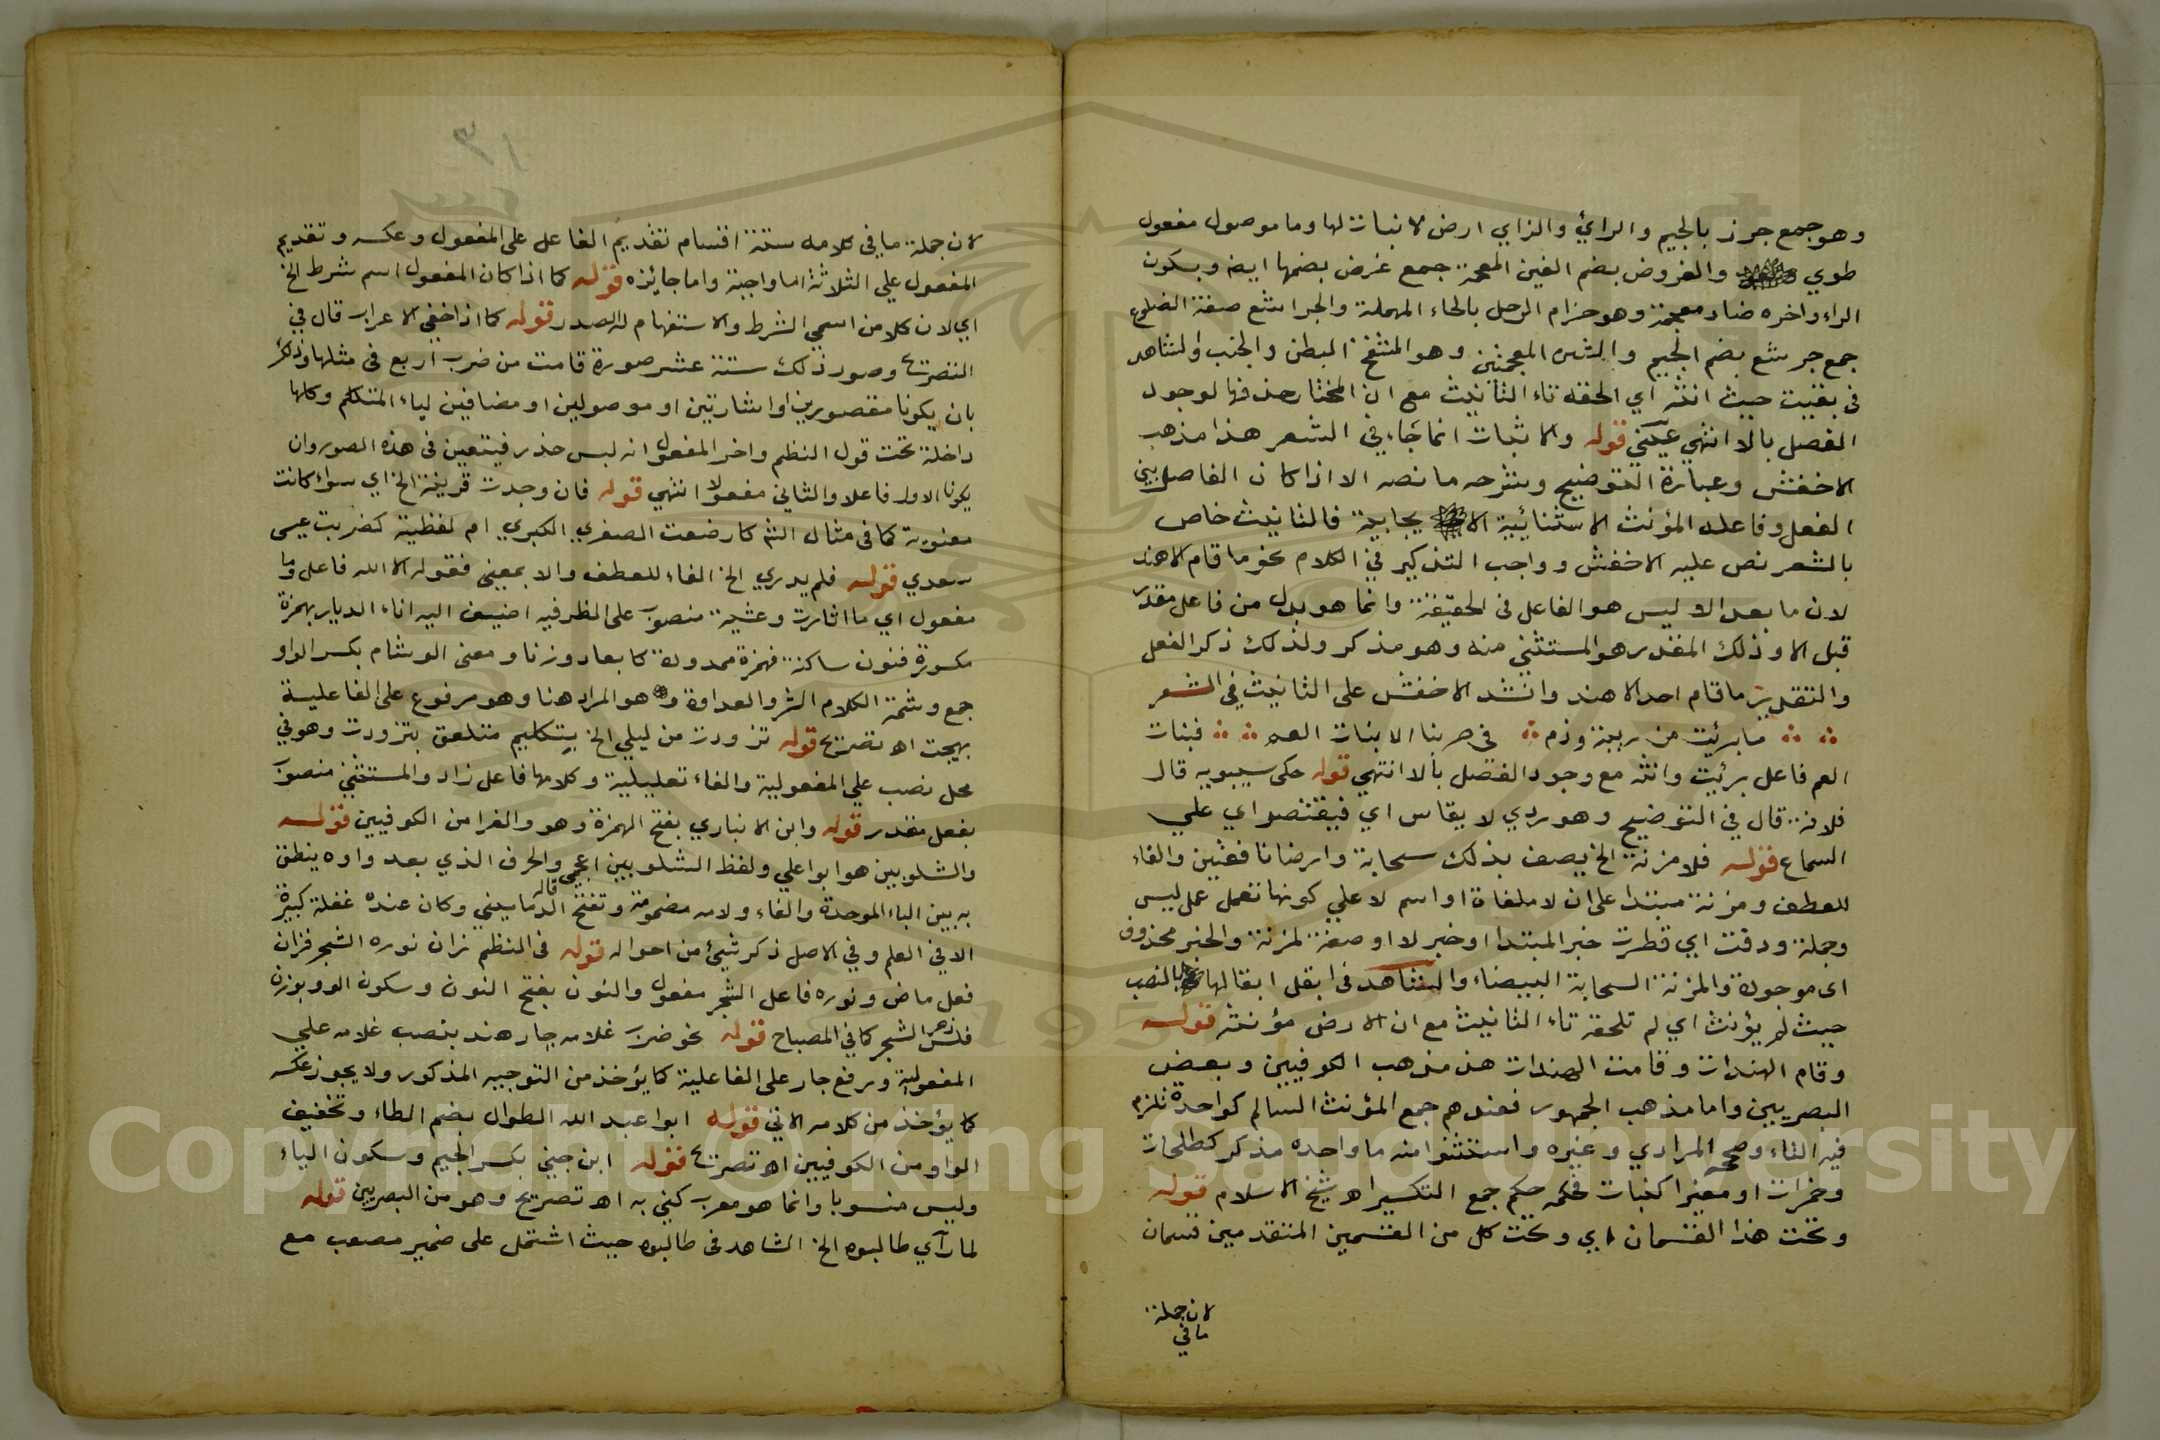 وهو جمع جرز بالجيم والرائ والزاي ارض لا نبات لها وما موصول مفعول
طوي والغروض بضم الغين المعجمة جمع غرض بضمها ايضه وبسكون
الراء واخره ضاد معجمة وهو حزام الرحل بالحاء المهملة والجراشع صفة الضلوع
جمع جرشع بضم الجيم والشين المعجمتين وهو المنتفخ البطن والجنب والشاهد
في بقيت حيث انثه اي الحقه تاء التانيث مع ان المختار حذفها لوجود
الفصل بالا انتهي عيني قوله والاثبات انما جاء في الشعر هذا مذهب
الاخفش وعبارة التوضيح وشرحه ما نصه الا اذا كان الفاصل بين
الفعل وفاعله المؤنث الاستثنائية الايجابية فالتانيث خاص
بالشعر نص عليه الاخفش وواجب التذكير في الكلام نحو ما قام الا هند
لان ما بعد الا ليس هو الفاعل في الحقيقة وانما هو بدل من فاعل مقدر
قبل الا وذلك المقدر هو المستثني منه وهو مذكر ولذلك ذكر الفعل
والتقدير ما قام احد الا هند وانشد الاخفش على التانيث في الشعر
ما برئيت من ريبة وذم في حربنا الا بنات العم فبنات
العم فاعل برئيت وانثه مع وجود الفصل بالا انتهي قوله حكى سيبويه قال
فلانة قال في التوضيح وهو ردي لا يقاس اي فيقتصر اي علي
السماع قوله فلا مزنة الخ يصف بذلك سحابة وارضا نافعتين والفاء
للعطف ومزنة مبتدا على ان لا ملغاة او اسم لا علي كونها تعمل عمل ليس
وجملة ودقت اي قطرت خبر المبتدا او خبر لا او صفة لمزنة والخبر محذوف
اى موجودة والمزنة السحابة البيضاء والشاهد في ابقل ابقالها بالنصب
حيث لم يؤنث اي لم تلحقه تاء التانيث مع ان الارض مؤنثه قوله
وقام الهندات وقامت الهندات هذ مذهب الكوفيين وبعض
البصريين واما مذهب الجمهور فعندهم جمع المؤنث السالم كواحده تلزم
فيه التاء وصححه المرادي وغيره واستثنوا منه ما واحده مذكر كطلحات
وحمزات او مغيرا كبنات فحكمه حكم جمع التكسير اه شيخ الاسلام قوله
وتحت هذا القسمان اي وتحت كل من القسمين المتقدمين قسمان
لان جملة
ما في
لان جملة ما في كلامه ستة اقسام تقديم الفاعل على المفعول وعكسه وتقديم
المفعول علي الثلاثة اما واجبة واما جايزه قوله كما اذا كان المفعول اسم شرط الخ
اي لان كلا من اسمي الشرط والاستفهام له الصدر قوله كما اذا خفي الاعراب قال في
التصريح وصور ذلك ستة عشر صورة قامت من ضرب اربع في مثلها وذلك
بان يكونا مقصورين او اشارتين او موصولين او مضافين لياء المتكلم وكلها
داخلة تحت قول النظم واخر المفعول ان لبس حذر فيتعين في هذه الصور ان
يكونا الاول فاعلا والثاني مفعولا انتهي قوله فان وجدت قرينة الخ اي سواء كانت
معنوية كما في مثال الش كارضعت الصغري الكبري ام لفظية كضربت عيسى
سعدي قوله فلم يدري الخ الفاء للعطف والا بمعنى فقوله الا الله فاعل وما
مفعول اي ما اثارت وعشية منصوب على الظرفيه اضيف اليه اناء الديار بهمزة
مكسورة فنون ساكنة فهمزة ممدودة كابعاد وزنا ومعنى الوشام بكسر الواو
جمع وشمة الكلام الشر والعداوة وهو المراد هنا وهو مرفوع على الفاعلية
بهيجت اه تصريح قوله تزودت من ليلي الخ بتكليم متلعق بتزودت وهو في
محل نصب علي المفعولية والفاء تعليلية وكلامها فاعل زاد والمستثني منصوب
بفعل مقدر قوله وابن الانباري بفتح الهمزة وهو والفرا من الكوفيين قوله
والشلوبين هو ابوا علي ولفظ الشلوبين اعجمي والحرف الذي بعد واوه ينطق
به بين الباء الموحدة والفاء ولامه مضمومة وتفتح قاله الدماميني وكان عنده غفلة كبيرة
الا في العلم وفي الاصل ذكر شيئ من احواله قوله في النظم زان نوره الشجر فزان
فعل ماض ونوره فاعل الشجر مفعول والنون بفتح النون وسكون الوو بوزن
فلس زهر الشجر كما في المصباح قوله نحو ضرب غلامه جار هند بنصب غلامه علي
المفعولية ورفع جار على الفاعلية كما يؤخذ من التوجيه المذكور ولا يجوز عكسه
كما يؤخذ من كلامه الاتي قوله ابوا عبد الله الطوال بضم الطاء وتخفيف
الواو من الكوفيين اه تصريح قوله ابن جني بكسر الجيم وسكون الياء
وليس منسوبا وانما هو معرب كني به اه تصريح وهو من البصريين قوله
لما رآي طالبوه الخ الشاهد في طالبوه حيث اشتمل على ضمير مصعب مع
Copyright © King Saud University